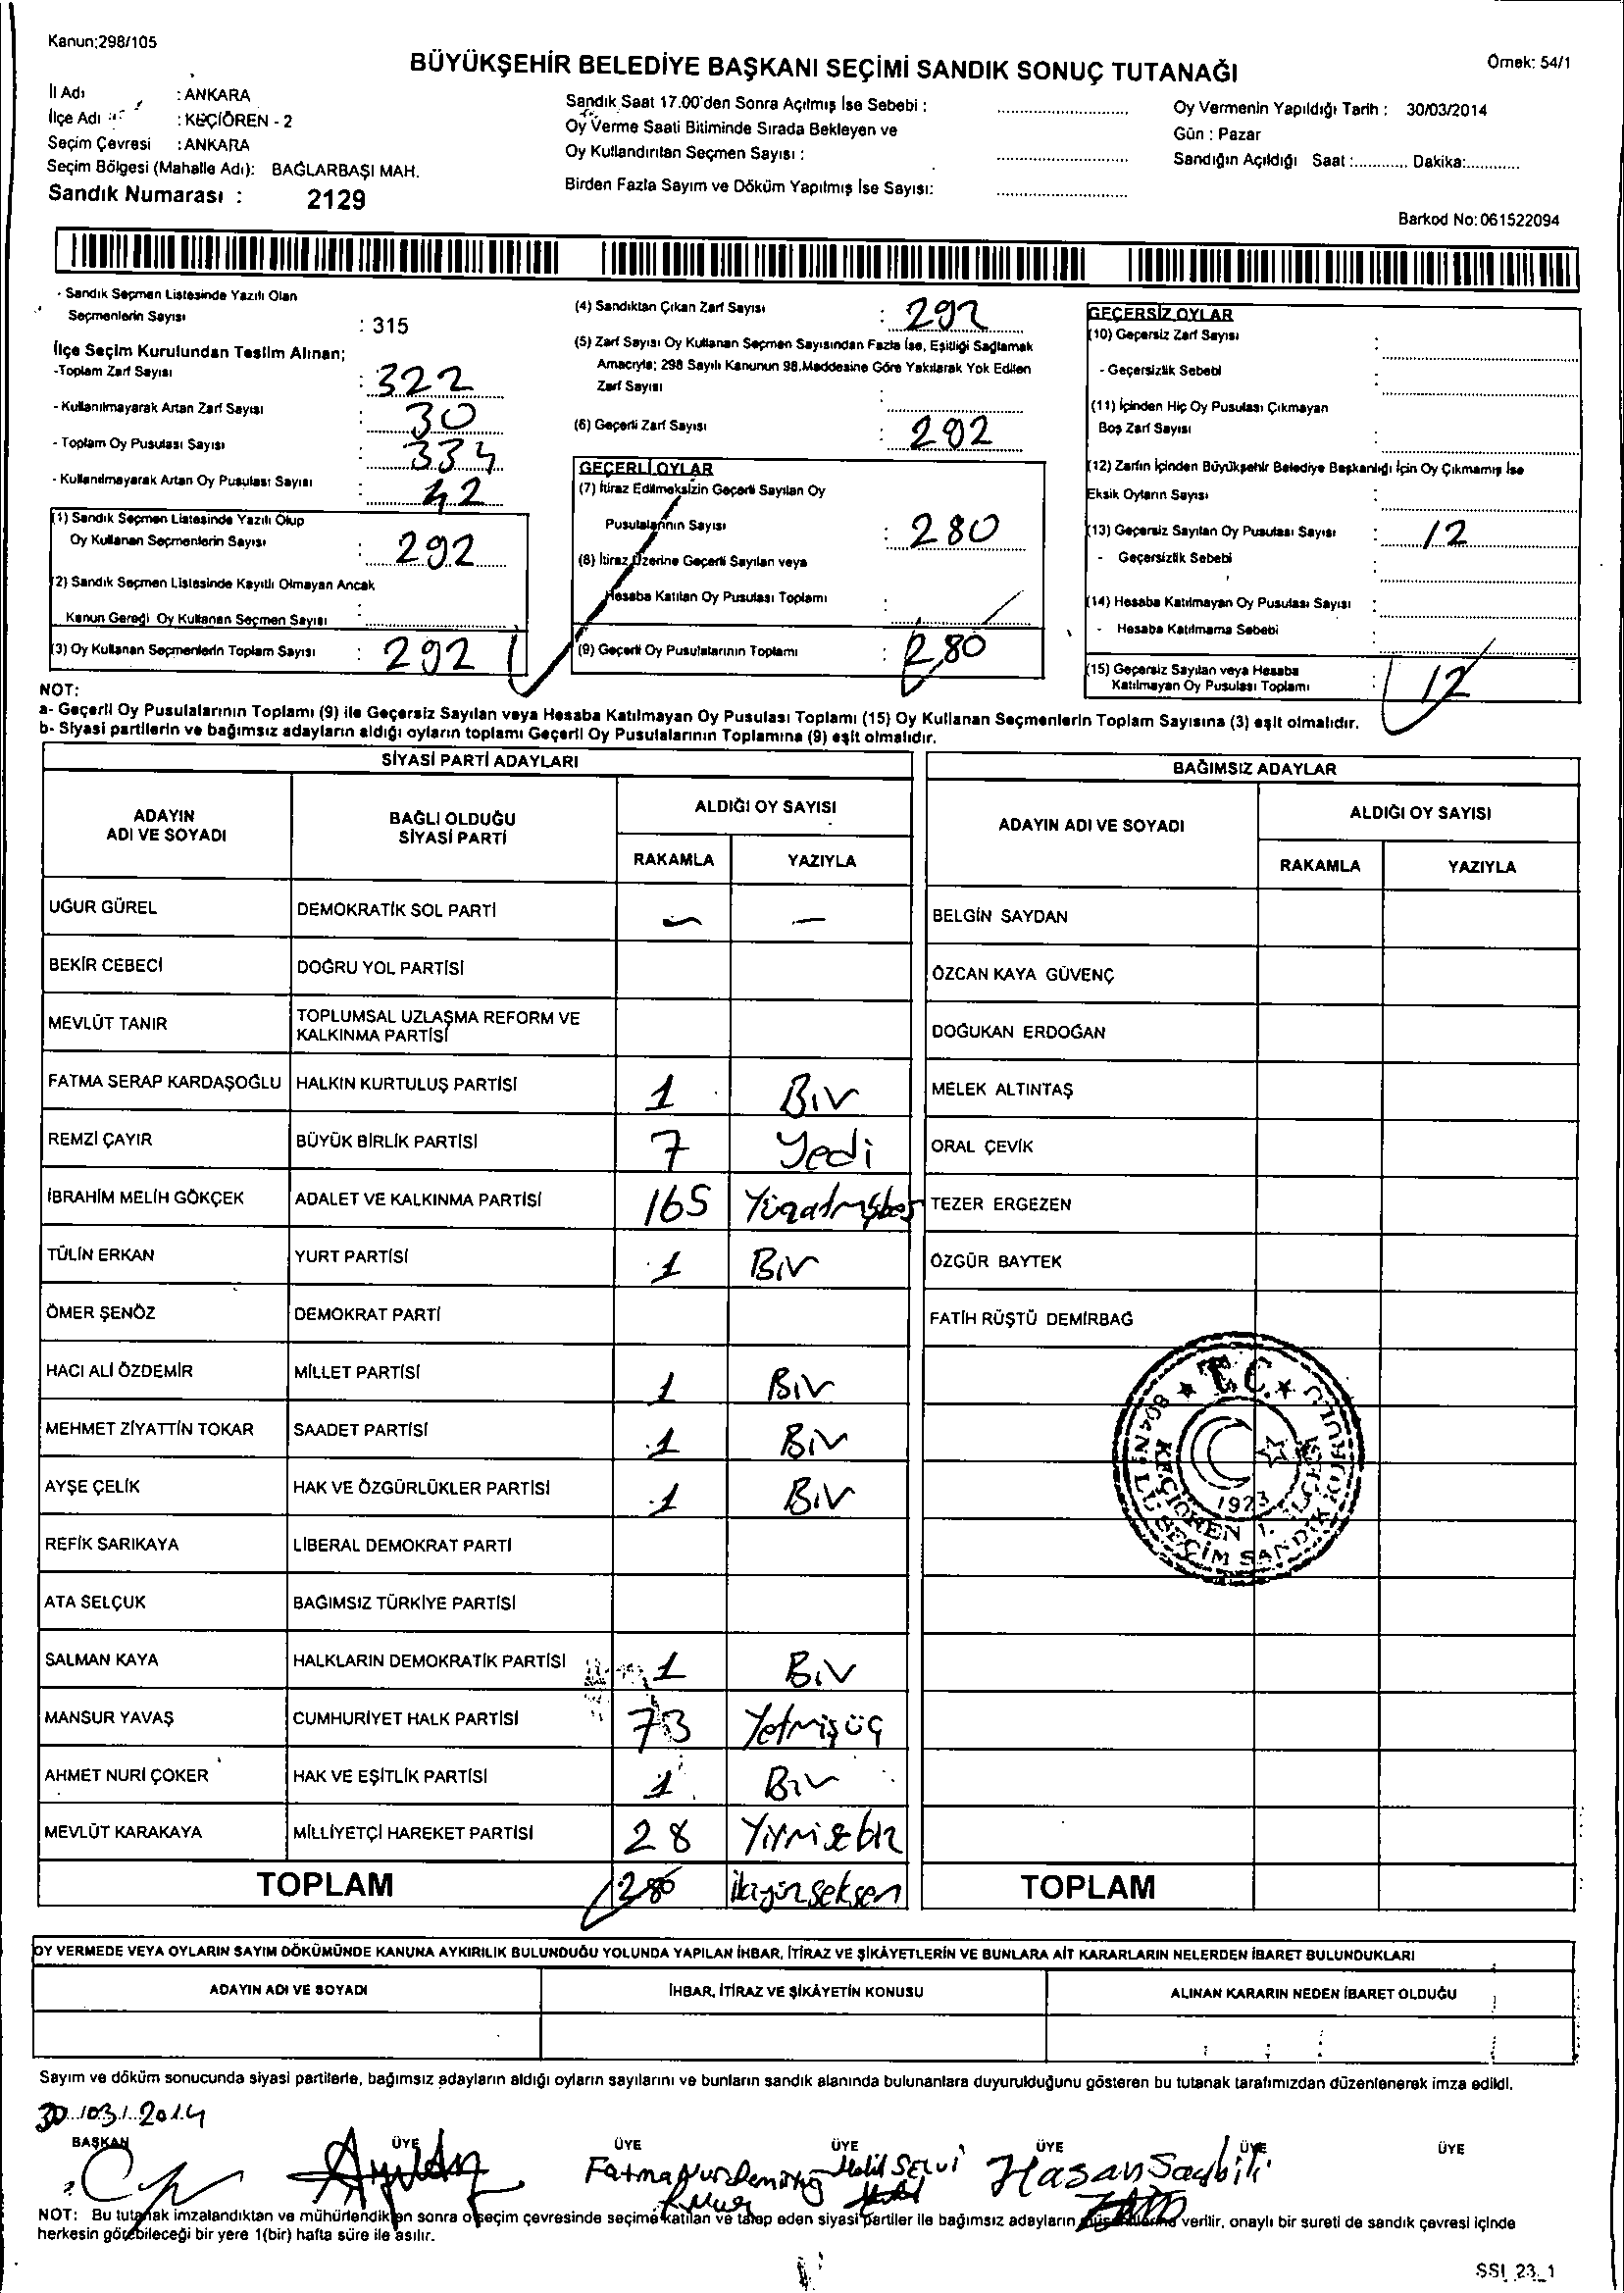 Kanun:298/105
BÜYÜKŞEHİR BELEDİYE BAŞKANI SEÇİMİ SANDIK SONUÇ TUTANAĞI
Örnek: 54/1
İl Adı : ANKARA
İlçe Adı : KEÇİÖREN - 2
Seçim Çevresi : ANKARA
Seçim Bölgesi (Mahalle Adı): BAĞLARBAŞI MAH.
Sandık Numarası : 2129
Sandık Saat 17.00'den Sonra Açılmış İse Sebebi :
Oy Verme Saati Bitiminde Sırada Bekleyen ve
Oy Kullandırılan Seçmen Sayısı :
Birden Fazla Sayım ve Döküm Yapılmış İse Sayısı:
Oy Vermenin Yapıldığı Tarih : 30/03/2014
Gün : Pazar
Sandığın Açıldığı Saat :............ Dakika:............
Barkod No:061522094
- Sandık Seçmen Listesinde Yazılı Olan
Seçmenlerin Sayısı : 315
İlçe Seçim Kurulundan Teslim Alınan;
-Toplam Zarf Sayısı : 322
- Kullanılmayarak Artan Zarf Sayısı : 30
- Toplam Oy Pusulası Sayısı : 334
- Kullanılmayarak Artan Oy Pusulası Sayısı : 42
(1) Sandık Seçmen Listesinde Yazılı Olup
Oy Kullanan Seçmenlerin Sayısı : 292
(2) Sandık Seçmen Listesinde Kayıtlı Olmayan Ancak
Kanun Gereği Oy Kullanan Seçmen Sayısı :
(3) Oy Kullanan Seçmenlerin Toplam Sayısı : 292
(4) Sandıktan Çıkan Zarf Sayısı : 292
(5) Zarf Sayısı Oy Kullanan Seçmen Sayısından Fazla İse, Eşitliği Sağlamak
Amacıyla; 298 Sayılı Kanunun 98.Maddesine Göre Yakılarak Yok Edilen
Zarf Sayısı :
(6) Geçerli Zarf Sayısı : 292
GEÇERLİ OYLAR
(7) İtiraz Edilmeksizin Geçerli Sayılan Oy
Pusulalarının Sayısı : 280
(8) İtiraz Üzerine Geçerli Sayılan veya
Hesaba Katılan Oy Pusulası Toplamı :
(9) Geçerli Oy Pusulalarının Toplamı : 280
GEÇERSİZ OYLAR
(10) Geçersiz Zarf Sayısı :
- Geçersizlik Sebebi :
(11) İçinden Hiç Oy Pusulası Çıkmayan
Boş Zarf Sayısı :
(12) Zarfın İçinden Büyükşehir Belediye Başkanlığı İçin Oy Çıkmamış İse
Eksik Oyların Sayısı :
(13) Geçersiz Sayılan Oy Pusulası Sayısı : 12
- Geçersizlik Sebebi
(14) Hesaba Katılmayan Oy Pusulası Sayısı :
- Hesaba Katılmama Sebebi
(15) Geçersiz Sayılan veya Hesaba
Katılmayan Oy Pusulası Toplamı : 12
NOT:
a- Geçerli Oy Pusulalarının Toplamı (9) ile Geçersiz Sayılan veya Hesaba Katılmayan Oy Pusulası Toplamı (15) Oy Kullanan Seçmenlerin Toplam Sayısına (3) eşit olmalıdır.
b- Siyasi partilerin ve bağımsız adayların aldığı oyların toplamı Geçerli Oy Pusulalarının Toplamına (9) eşit olmalıdır.
SİYASİ PARTİ ADAYLARI
ADAYIN ADI VE SOYADI BAĞLI OLDUĞU SİYASİ PARTİ ALDIĞI OY SAYISI
RAKAMLA YAZIYLA
UĞUR GÜREL DEMOKRATİK SOL PARTİ - -
BEKİR CEBECİ DOĞRU YOL PARTİSİ
MEVLÜT TANIR TOPLUMSAL UZLAŞMA REFORM VE KALKINMA PARTİSİ
FATMA SERAP KARDAŞOĞLU HALKIN KURTULUŞ PARTİSİ 1 Bir
REMZİ ÇAYIR BÜYÜK BİRLİK PARTİSİ 7 Yedi
İBRAHİM MELİH GÖKÇEK ADALET VE KALKINMA PARTİSİ 165 Yüzatmışbeş
TÜLİN ERKAN YURT PARTİSİ 1 Bir
ÖMER ŞENÖZ DEMOKRAT PARTİ
HACI ALİ ÖZDEMİR MİLLET PARTİSİ 1 Bir
MEHMET ZİYATTİN TOKAR SAADET PARTİSİ 1 Bir
AYŞE ÇELİK HAK VE ÖZGÜRLÜKLER PARTİSİ 1 Bir
REFİK SARIKAYA LİBERAL DEMOKRAT PARTİ
ATA SELÇUK BAĞIMSIZ TÜRKİYE PARTİSİ
SALMAN KAYA HALKLARIN DEMOKRATİK PARTİSİ 1 Bir
MANSUR YAVAŞ CUMHURİYET HALK PARTİSİ 73 Yetmişüç
AHMET NURİ ÇOKER HAK VE EŞİTLİK PARTİSİ 1 Bir
MEVLÜT KARAKAYA MİLLİYETÇİ HAREKET PARTİSİ 28
TOPLAM 280 ikiyüzseksen
BAĞIMSIZ ADAYLAR
ADAYIN ADI VE SOYADI ALDIĞI OY SAYISI
RAKAMLA YAZIYLA
BELGİN SAYDAN
ÖZCAN KAYA GÜVENÇ
DOĞUKAN ERDOĞAN
MELEK ALTINTAŞ
ORAL ÇEVİK
TEZER ERGEZEN
ÖZGÜR BAYTEK
FATİH RÜŞTÜ DEMİRBAĞ
T.C.
1923
TOPLAM
OY VERMEDE VEYA OYLARIN SAYIM DÖKÜMÜNDE KANUNA AYKIRILIK BULUNDUĞU YOLUNDA YAPILAN İHBAR, İTİRAZ VE ŞİKÂYETLERİN VE BUNLARA AİT KARARLARIN NELERDEN İBARET BULUNDUKLARI
ADAYIN ADI VE SOYADI İHBAR, İTİRAZ VE ŞİKÂYETİN KONUSU ALINAN KARARIN NEDEN İBARET OLDUĞU
Sayım ve döküm sonucunda siyasi partilerle, bağımsız adayların aldığı oyların sayılarını ve bunların sandık alanında bulunanlara duyurulduğunu gösteren bu tutanak tarafımızdan düzenlenerek imza edildi.
30/03/2014
BAŞKAN ÜYE ÜYE ÜYE ÜYE ÜYE ÜYE
Halil SELVİ Hasan
NOT: Bu tutanak imzalandıktan ve mühürlendikten sonra o seçim çevresinde seçime katılan ve talep eden siyasi partiler ile bağımsız adayların müşahitlerine verilir, onaylı bir sureti de sandık çevresi içinde
herkesin görebileceği bir yere 1(bir) hafta süre ile asılır.
SSI_23_1